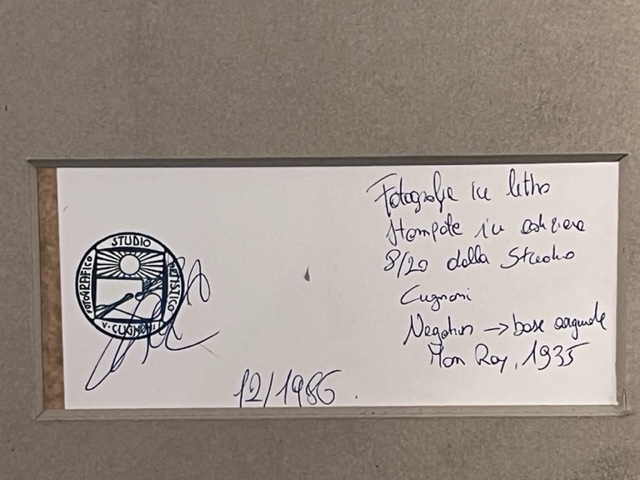 STUDIO ARTISTICO
FOTOGRAFICO
V. CUGNONI
Fotografie in litho
stampate in
8/20 dallo Studio
Cugnoni
Negativo → base
Man Ray, 1935
12/1986.